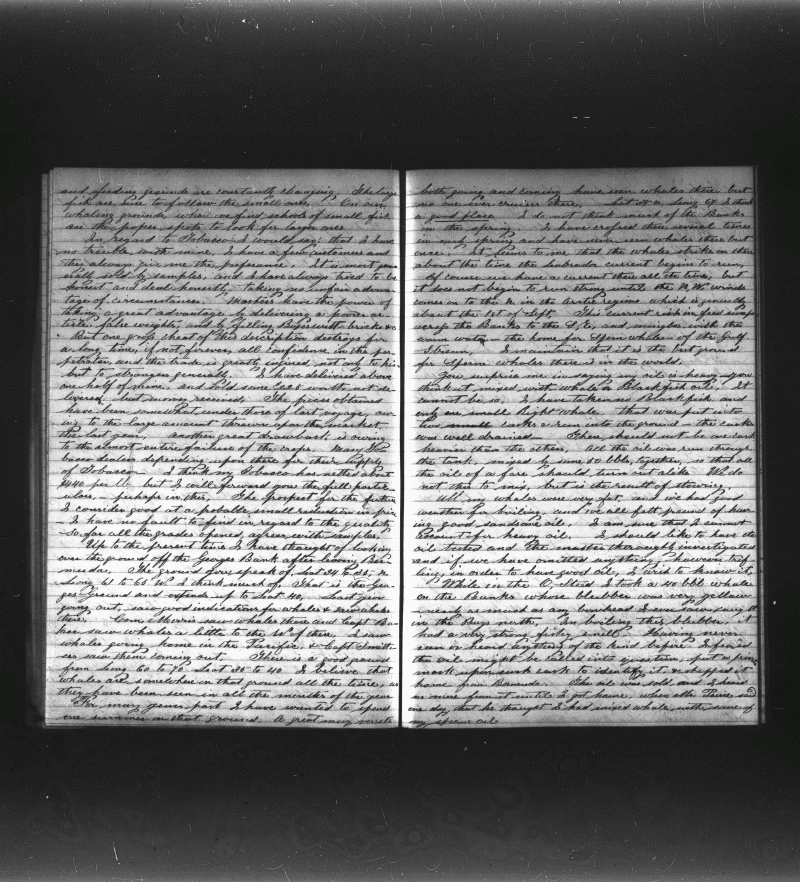 and feeding grounds are constantly changing. The large
fish are sure to follow the small ones. On our
whaling grounds, when we find schools of small fish
are the proper spots to look for larger ones
In regard to Tobacco I would say; that I have
no trouble with mine, I have a few customers and
they always give me the preference. It is most gen-
erally sold by samples, and I have always tried to be
honest and deal honestly, taking no unfair advan-
tage of circumstances. Many have the power of
taking a great advantage by delivering a poor ar-
ticle, false weights, and by filling Boxes with bricks &c
But one gross cheat of this description destroys for
a long time, if not forever, all confidence in the per-
petrator, and the trade is greatly injured, not only to his
but to strangers generally. I have delivered about
one half of mine, and sold some lots not de-
livered, but money received. The prices obtained
have been somewhat under those of last voyage, ow-
ing to the large amount thrown upon the market
the last year, another great drawback is owing
to the almost entire failure of the crops. Many
been depending upon there for their supply
of Tobacco. I think my Tobacco has netted about
per lb. but I will forward you the full partic-
ulars, perhaps in this. The prospect for the future
I consider good at a probable small reduction in price
I have no fault to find in regard to the quality
So far all the grades opened, agree with samples.
Up to the present time I have thought of looking
over the ground off the Georges Bank after leaving Ber-
muda. The ground you speak of, Lat 34 to 35, &
Long 61 to 65 W. I think much of. That is the Geor-
ges Ground and extends up to Lat 40, Last year
going out, saw good indications for whales & saw whales
there. Com Morris saw whales there and Capt Ba-
ker saw whales a little to the Sd of there. I saw
whales going home in the Pacific, & Capt Smith-
ers saw them coming out. There is a good ground
from Long 60 to 70 Lat 38 to 40 I believe that
whales are somewhere on that ground all the time, as
they have been seen in all the months of the year
For many years past I have wanted to spend
one summer on that ground. A great many vessels
both going and coming have seen whales there but
no one ever cruises there. Lat Long 67 I think
a good place I do not think much of the Banks
in the spring. I have crossed there several times
in early spring and have never seen whales there but
once. It seems to me, that the whales strike on there
about the time the Labrador current begins to run,
Of course we have a current there all the time, but
it does not begin to run strong until the N.W. winds
comes on to the N in the Artic regions which is generally
about the 1st of Sept. This current rich in feed sweeps
across the Banks to the S.E, and mingles with the
warm water the home for Sperm whales of the Gulf
Stream. I maintain that it is the best ground
for Sperm whales there is in the world.
You surprise me in saying my oil is heavy & you
think it mixed with whale & Blackfish oil. It
cannot be so, I have taken no Blackfish and
only one small Right whale, that was put into
two small casks & run into the ground the casks
was well drained. There should not be one cask
heavier than the others, All the oil was run through
the tank, mixed some 50 bbls, together, so that all
the oil of a fare should turn out alike. We do
not then to mix, but is the result of stowing.
All my whales were very fat, and we had good
weather for boiling, and we all felt proud of hav-
ing good handsome oil. I am sure that I cannot
account for heavy oil. I should like to have the
oil tested and the matter thoroughly investigated
and if we have omitted anything, however trif-
ling, in order to have good oil, I wish to know it
While in the O. Stud I took a 40 bbl whale
on the Banks whose blubber was very yellow
nearly as much as any bowhead I ever saw caught
in the Bays north, In boiling this blubber it
had a very strong fishy smell. Having never
seen or heard anything of the kind before I feared
the oil might be called into question, put a private
mark upon each cask to identify it & shipped it
home from Bermuda. The oil was sold and I heard
no more from it until I got home, when said
one day that he thought I had mixed whale, with some of
my sperm oil